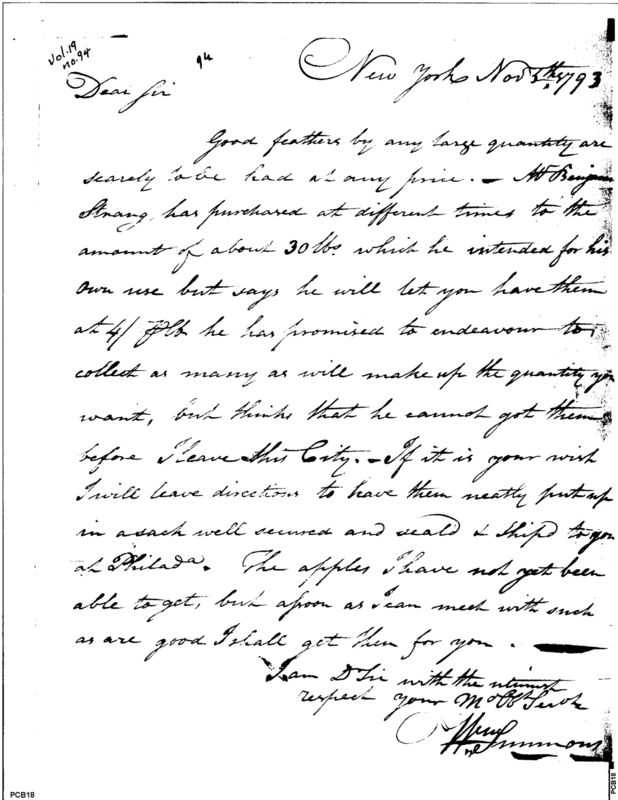 Vol. 19
no. 94
94
New York Nov 5th 1793
Dear Sir
Good feathers by any large quantity are
scarely to be had at any price. — Mr Benjamin
Strang has purchased at different times to the
amount of about 30 lbs which he intended for his
own use but says he will let you have them
at 4/ ⅌ lb he has promised to endeavour to
collect as many as will make up the quantity you
want, but thinks that he cannot get them
before I leave this City. — If it is your wish
I will leave directions to have them neatly put up
in a sack well secured and seald & Shipd to you
at Philada. The apples I have not yet been
able to get, but asoon as I can meet with such
as are good I shall get them for you.
I am Dr Sir with the utmost
respect your Mo Obt Servt
Wm Simmons
PCB18
PCB18